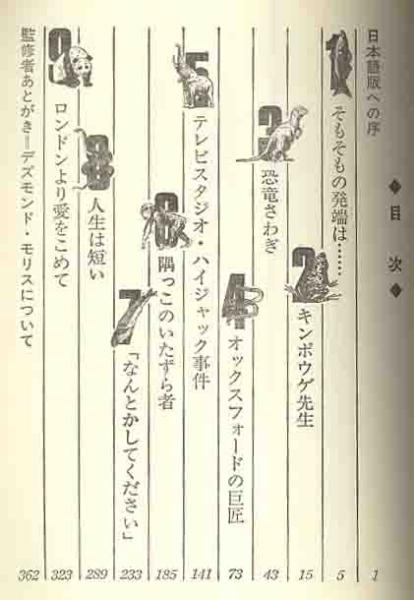 ◆目次◆
日本語版への序 1
1 そもそもの発端は…… 5
2 キンポウゲ先生 15
3 恐竜さわぎ 43
4 オックスフォードの巨匠 73
5 テレビスタジオ・ハイジャック事件 141
6 隅っこのいたずら者 185
7 「なんとかしてください」 233
8 人生は短い 289
9 ロンドンより愛をこめて 323
監修者あとがき＝デズモンド・モリスについて 362